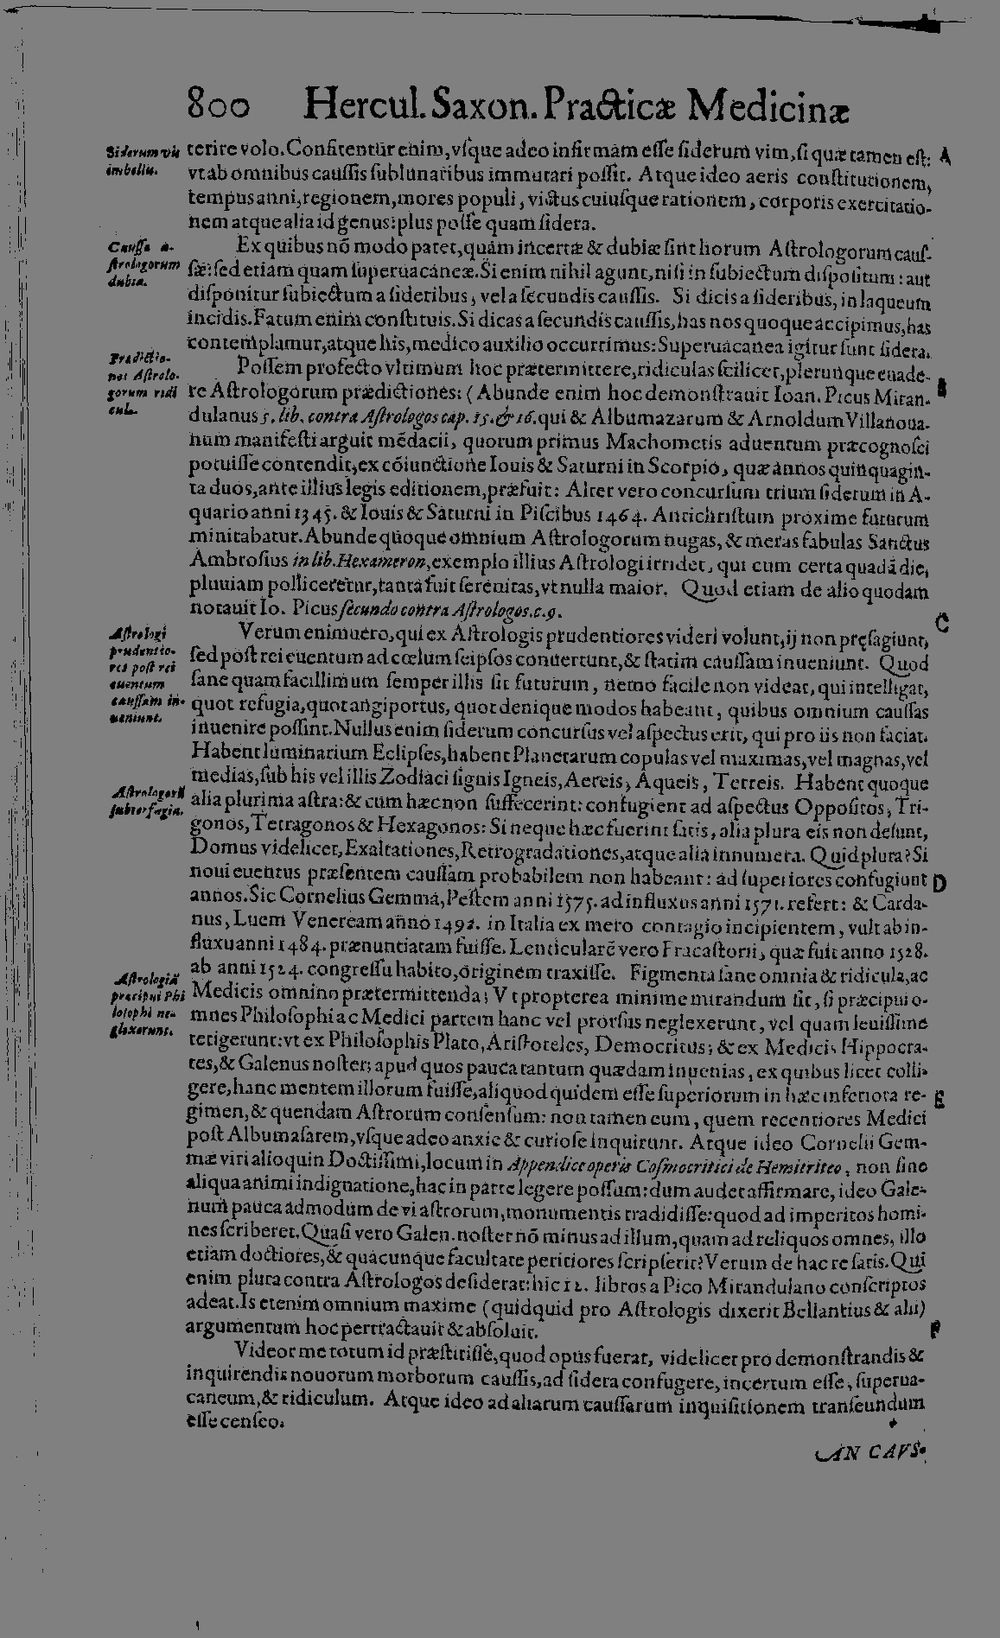 800 Hercul. Saxon. Practicæ Medicinæ
Siderum vis
imbellis.
terire volo. Confitentur enim, vſque adeo infirmam eſſe ſiderum vim, ſi quæ tamen eſt: A
vt ab omnibus cauſſis ſublunaribus immutari poſſit. Atque ideo aeris conſtitutionem,
tempus anni, regionem, mores populi, victus cuiuſque rationem, corporis exercitatio-
nem atque alia id genus: plus poſſe quam ſidera.
Cauſſæ A-
ſtrologorum
dubiæ.
Ex quibus nō modo patet, quàm incertæ & dubiæ ſint horum Aſtrologorum cauſ-
ſæ: ſed etiam quam ſuperuacaneæ. Si enim nihil agunt, niſi in ſubiectum diſpoſitum: aut
diſponitur ſubiectum a ſideribus, vel a ſecundis cauſſis. Si dicis a ſideribus, in laqueum
incidis. Fatum enim conſtituis. Si dicas a ſecundis cauſſis, has nos quoque accipimus, has
contemplamur, atque his, medico auxilio occurrimus: Superuacanea igitur ſunt ſidera.
Prædictio-
nes Aſtrolo-
gorum ridi
culæ.
Poſſem profecto vltimum hoc prætermittere, ridiculas ſcilicet, plerunque euade- B
re Aſtrologorum prædictiones: (Abunde enim hoc demonſtrauit Ioan. Picus Miran-
dulanus 5. lib. contra Aſtrologos cap. 15. & 16. qui & Albumazarum & Arnoldum Villanoua-
num manifeſti arguit mēdacii, quorum primus Machometis aduentum præcognoſci
potuiſſe contendit, ex cōiunctione Iouis & Saturni in Scorpio, quæ annos quinquagin-
ta duos, ante illius legis editionem, præfuit: Alter vero concurſum trium ſiderum in A-
quario anni 1345. & Iouis & Saturni in Piſcibus 1464. Antichriſtum proxime futurum
minitabatur. Abunde quoque omnium Aſtrologorum nugas, & meras fabulas Sanctus
Ambroſius in lib. Hexameron, exemplo illius Aſtrologi irridet, qui cum certa quadā die,
pluuiam polliceretur, tanta fuit ſerenitas, vt nulla maior. Quod etiam de alio quodam
notauit Io. Picus ſecundo contra Aſtrologos. c. 9. C
Aſtrologi
prudentio-
res poſt rei
euentum
cauſſam in-
ueniunt.
Verum enimuero, qui ex Aſtrologis prudentiores videri volunt, ij non pręſagiunt,
ſed poſt rei euentum ad cœlum ſeipſos conuertunt, & ſtatim cauſſam inueniunt. Quod
ſane quam facillimum ſemper illis ſit futurum, nemo facile non videat, qui intelligat,
quot refugia, quot angiportus, quot denique modos habeant, quibus omnium cauſſas
inuenire poſſint. Nullus enim ſiderum concurſus vel aſpectus erit, qui pro iis non faciat.
Habent luminarium Eclipſes, habent Planetarum copulas vel maximas, vel magnas, vel
medias, ſub his vel illis Zodiaci ſignis Igneis, Aereis, Aqueis, Terreis. Habent quoque
Aſtrologorū
ſubterfugia.
alia plurima aſtra: & cum hæc non ſuffecerint: confugient ad aſpectus Oppoſitos, Tri-
gonos, Tetragonos & Hexagonos: Si neque hæc fuerint ſatis, alia plura eis non deſunt,
Domus videlicet, Exaltationes, Retrogradationes, atque alia innumera. Quid plura? Si
noui euentus præſentem cauſſam probabilem non habeant: ad ſuperiores confugiunt D
annos. Sic Cornelius Gemma, Peſtem anni 1575. ad influxus anni 1571. refert: & Carda-
nus, Luem Veneream anno 1492. in Italia ex mero contagio incipientem, vult ab in-
fluxu anni 1484. prænuntiatam fuiſſe. Lenticularē vero Fracaſtorii, quæ fuit anno 1528.
ab anni 1524. congreſſu habito, originem traxiſſe. Figmenta ſane omnia & ridicula, ac
Aſtrologiā
præcipui Phi
loſophi ne-
glexerunt.
Medicis omnino prætermittenda; Vt propterea minime mirandum ſit, ſi præcipui o-
mnes Philoſophi ac Medici partem hanc vel prorſus neglexerunt, vel quam leuiſſime
tetigerunt: vt ex Philoſophis Plato, Ariſtoteles, Democritus; & ex Medicis Hippocra-
tes, & Galenus noſter; apud quos pauca tantum quædam inuenias, ex quibus licet colli-
gere, hanc mentem illorum fuiſſe, aliquod quidem eſſe ſuperiorum in hæc inferiora re- E
gimen, & quendam Aſtrorum conſenſum: non tamen eum, quem recentiores Medici
poſt Albumaſarem, vſque adeo anxie & curioſe inquirunt. Atque ideo Cornelii Gem-
mæ viri alioquin Doctiſſimi, locum in Appendice operis Coſmocritici de Hemitriteo, non ſine
aliqua animi indignatione, hac in parte legere poſſum: dum audet affirmare, ideo Gale-
num pauca admodum de vi aſtrorum, monumentis tradidiſſe: quod ad imperitos homi-
nes ſcriberet. Quaſi vero Galen. noſter nō minus ad illum, quam ad reliquos omnes, illo
etiam doctiores, & quacunque facultate peritiores ſcripſerit? Verum de hac re ſatis. Qui
enim plura contra Aſtrologos deſiderat: hic 12. libros a Pico Mirandulano conſcriptos
adeat. Is etenim omnium maxime (quidquid pro Aſtrologis dixerit Bellantius & alii)
argumentum hoc pertractauit & abſoluit. F
Videor me totum id præſtitiſſe, quod opus fuerat, videlicet pro demonſtrandis &
inquirendis nouorum morborum cauſſis, ad ſidera confugere, incertum eſſe, ſuperua-
caneum, & ridiculum. Atque ideo ad aliarum cauſſarum inquiſitionem tranſeundum
eſſe cenſeo.
AN CAVS-